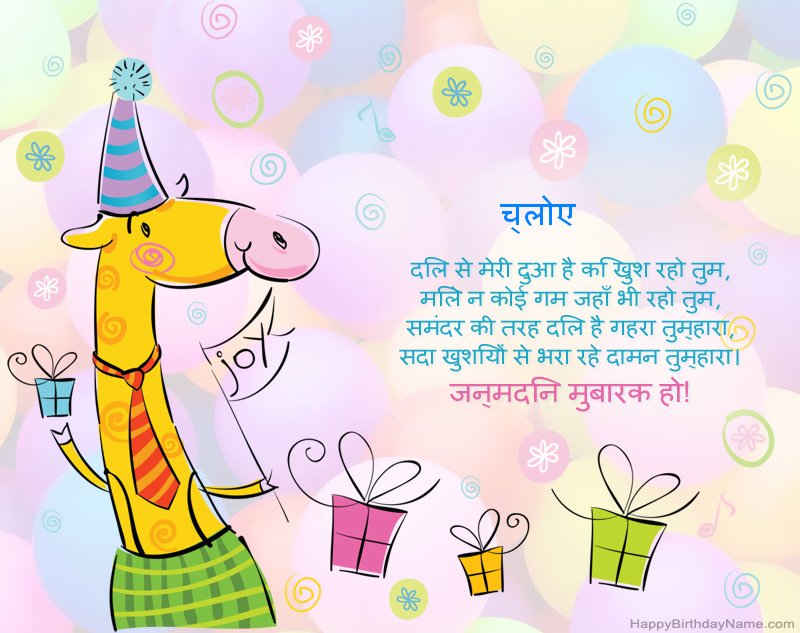 च्लोए
दिल से मेरी दुआ है कि खुश रहो तुम,
मिले न कोई गम जहाँ भी रहो तुम,
समंदर की तरह दिल है गहरा तुम्हारा,
सदा खुशियों से भरा रहे दामन तुम्हारा।
जन्मदिन मुबारक हो!
joy
HappyBirthdayName.com